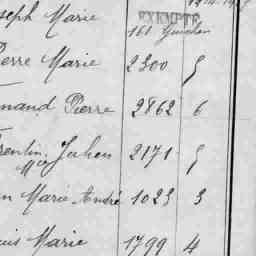 seph Marie EXEMPTÉ
161
Pierre Marie 2300
nand Pierre 2862 6
rentin Julien 2171
n Marie André 1023 3
uis Marie 1799 4